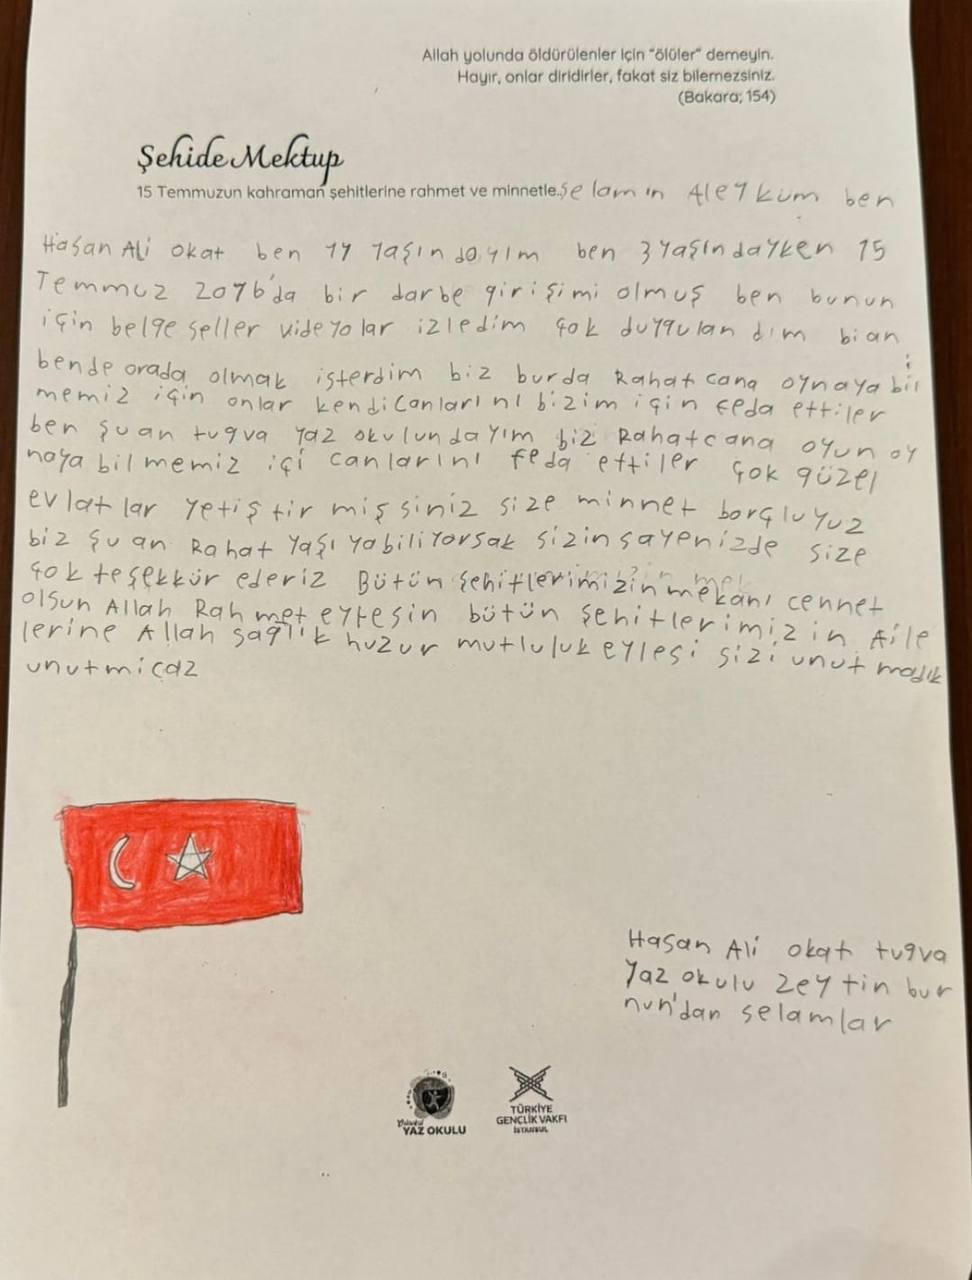 Allah yolunda öldürülenler için "ölüler" demeyin.
Hayır, onlar diridirler, fakat siz bilemezsiniz.
(Bakara; 154)
Şehide Mektup
15 Temmuzun kahraman şehitlerine rahmet ve minnetle.. Selamın Aleyküm ben
Hasan Ali Okat ben 11 Yaşındayım ben 3 yaşındayken 15
Temmuz 2016'da bir darbe girişimi olmuş ben bunun
için belgeseller videyolar izledim çok duygulandım bian
bende orada olmak isterdim biz burda Rahatcana oynaya bil
memiz için onlar kendi Canlarını bizim için feda ettiler
ben şuan tugva yaz okulundayım biz Rahatcana oyun oy
naya bilmemiz içi canlarını feda ettiler çok güzel
evlatlar yetiştirmişsiniz size minnet borçluyuz
biz şuan Rahat yaşıyabiliyorsak sizin sayenizde size
çok teşekkür ederiz Bütün şehitlerimizin mekanı cennet
olsun Allah Rahmet eylesin bütün şehitlerimizin Aile
lerine Allah sağlık huzur mutluluk eylesi sizi unutmadık
unutmicaz
Hasan Ali okat tugva
Yaz okulu Zeytin bur
nun'dan selamlar
YAZ OKULU
TÜRKİYE
GENÇLİK VAKFI
İSTANBUL